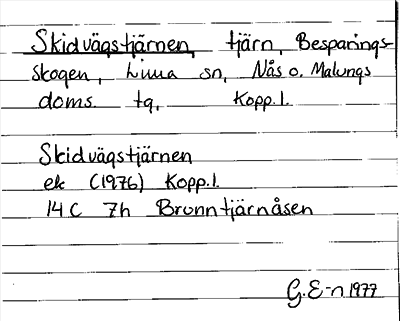 Skidvägstjärnen, tjärn, Besparings-
skogen, Lima sn, Nås o. Malungs
doms. tg, Kopp. l.
Skidvägstjärnen
ek (1976) Kopp. l.
14 C 7h Brunntjärnåsen
G. E-n 1977